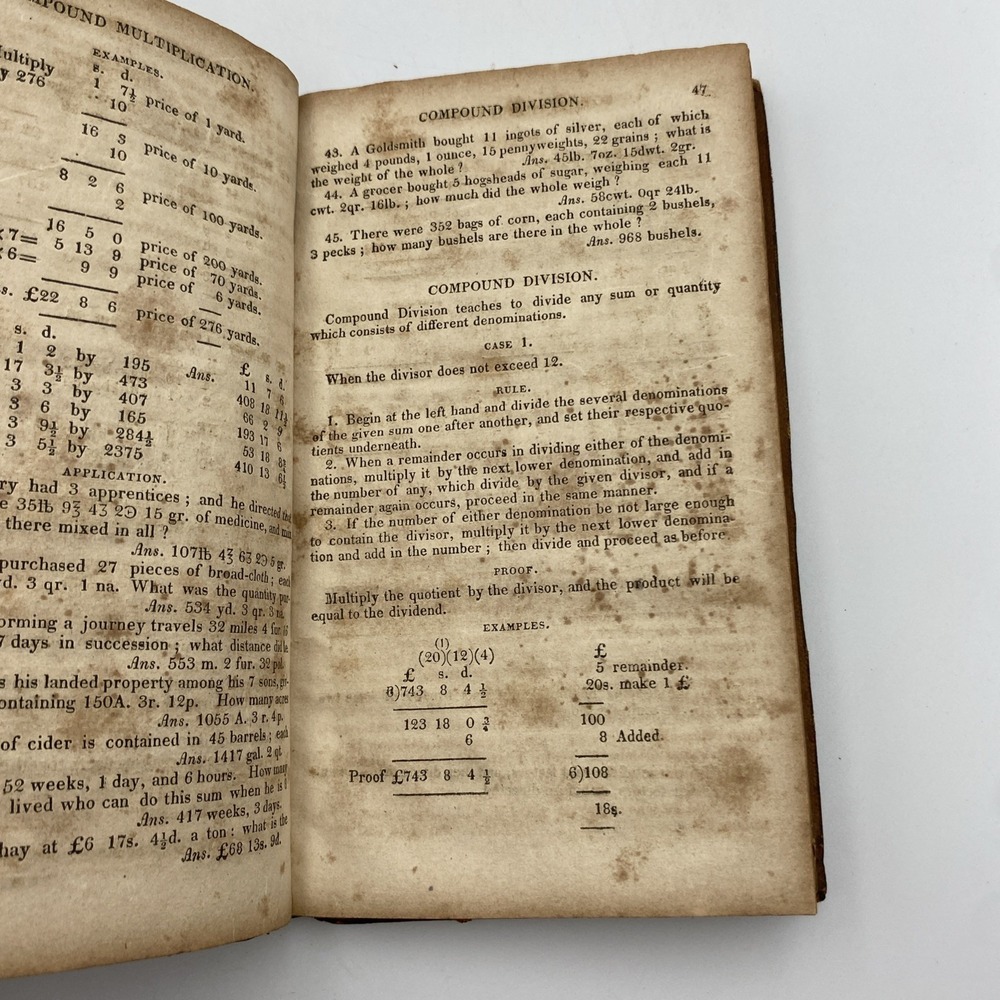 COMPOUND MULTIPLICATION.
EXAMPLES.
Multiply s. d.
by 276 1 7½ price of 1 yard.
10
16 3 price of 10 yards.
10
8 2 6 price of 100 yards.
2
16 5 0 price of 200 yards.
×7= 5 13 9 price of 70 yards.
×6= 9 9 price of 6 yards.
s. £22 8 6 price of 276 yards.
s. d. £ s. d.
1 2 by 195 Ans. 11 7 6
17 3½ by 473 408 18 11½
3 3 by 407 66 2 9
3 6 by 165 193 17 6
3 9½ by 284½ 53 18
3 5½ by 2375 410 13 6½
APPLICATION.
ry had 3 apprentices; and he directed
e 35℔ 9℥ 4ʒ 2℈ 15 gr. of medicine, and
there mixed in all ?
Ans. 107℔ 4℥ 6ʒ 2℈ 5 gr.
purchased 27 pieces of broad-cloth; each
yd. 3 qr. 1 na. What was the quantity pur-
Ans. 534 yd. 3 qr. 3 na.
orming a journey travels 32 miles 4 fur.
7 days in succession; what distance did he
Ans. 553 m. 2 fur. 32 pol.
s his landed property among his 7 sons,
ontaining 150A. 3r. 12p. How many acres
Ans. 1055 A. 3 r. 4p.
of cider is contained in 45 barrels; each
Ans. 1417 gal. 2 qt.
52 weeks, 1 day, and 6 hours. How many
lived who can do this sum when he is
Ans. 417 weeks, 3 days.
hay at £6 17s. 4½d. a ton: what is the
Ans. £68 13s. 9d.
COMPOUND DIVISION. 47
43. A Goldsmith bought 11 ingots of silver, each of which
weighed 4 pounds, 1 ounce, 15 pennyweights, 22 grains; what is
the weight of the whole ? Ans. 45lb. 7oz. 15dwt. 2gr.
44. A grocer bought 5 hogsheads of sugar, weighing each 11
cwt. 2qr. 16lb.; how much did the whole weigh ?
Ans. 58cwt. 0qr 24lb.
45. There were 352 bags of corn, each containing 2 bushels,
3 pecks; how many bushels are there in the whole ?
Ans. 968 bushels.
COMPOUND DIVISION.
Compound Division teaches to divide any sum or quantity
which consists of different denominations.
CASE 1.
When the divisor does not exceed 12.
RULE.
1. Begin at the left hand and divide the several denominations
of the given sum one after another, and set their respective quo-
tients underneath.
2. When a remainder occurs in dividing either of the denomi-
nations, multiply it by the next lower denomination, and add in
the number of any, which divide by the given divisor, and if a
remainder again occurs, proceed in the same manner.
3. If the number of either denomination be not large enough
to contain the divisor, multiply it by the next lower denomina-
tion and add in the number; then divide and proceed as before.
PROOF.
Multiply the quotient by the divisor, and the product will be
equal to the dividend.
EXAMPLES.
(1)
(20)(12)(4) £
£ s. d. 5 remainder.
6)743 8 4 ½ 20s. make 1 £
123 18 0 ¾ 100
6 8 Added.
Proof £743 8 4 ½ 6)108
18s.